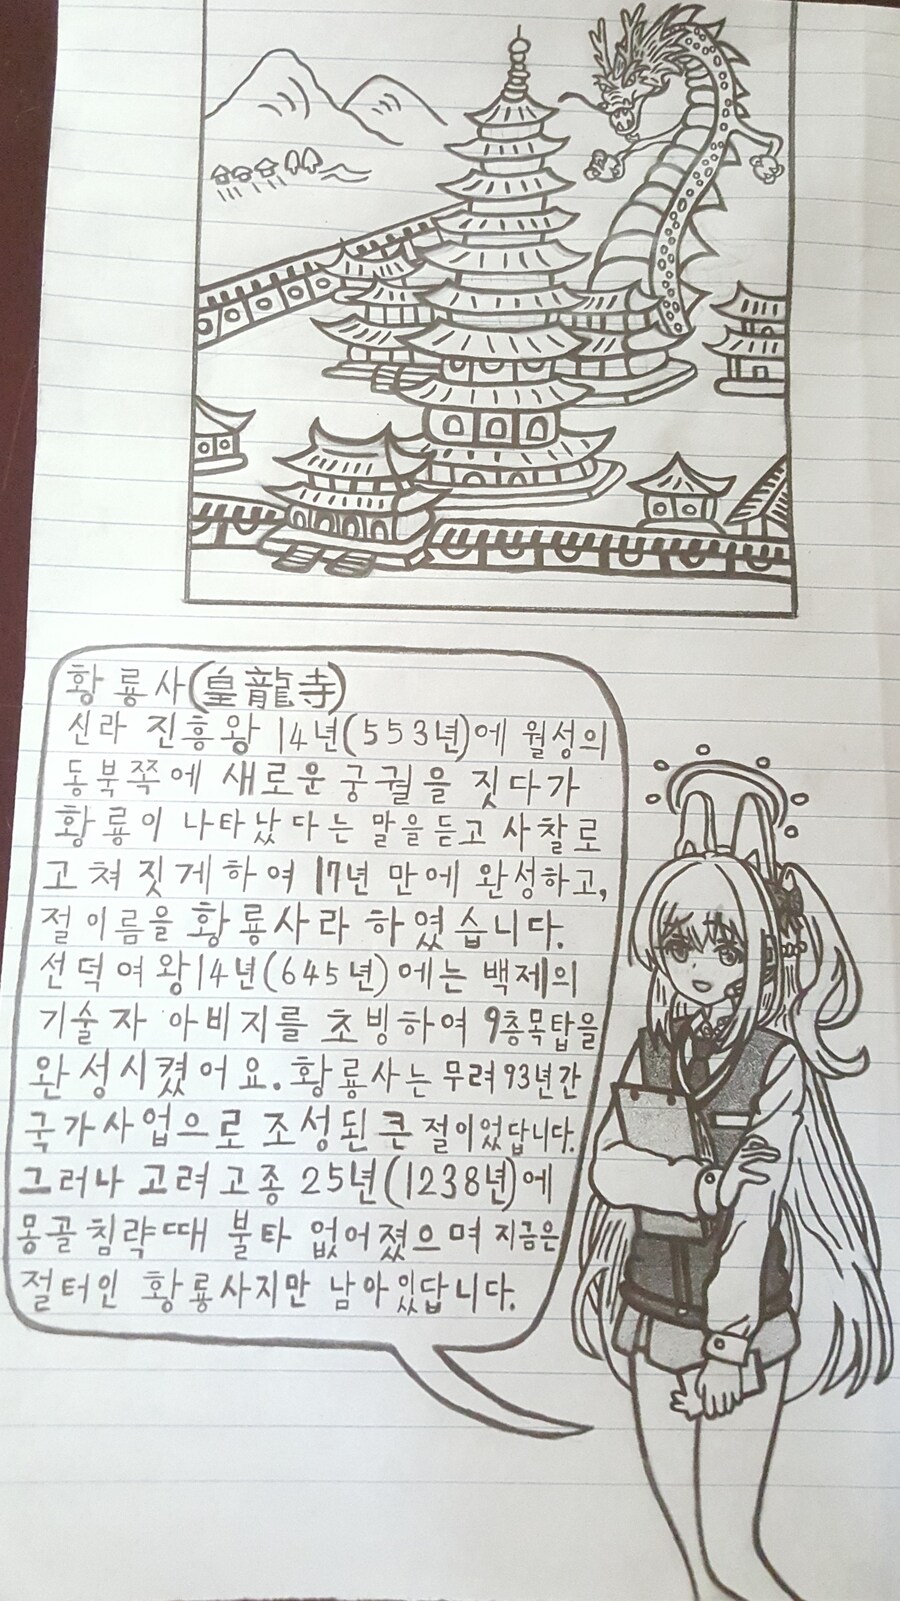 황룡사(皇龍寺)
신라 진흥왕 14년(553년)에 월성의
동북쪽에 새로운 궁궐을 짓다가
황룡이 나타났다는 말을 듣고 사찰로
고쳐 짓게하여 17년 만에 완성하고,
절 이름을 황룡사라 하였습니다.
선덕여왕14년(645년)에는 백제의
기술자 아비지를 초빙하여 9층목탑을
완성시켰어요. 황룡사는 무려 93년간
국가사업으로 조성된 큰 절이었답니다.
그러나 고려 고종 25년(1238년)에
몽골침략때 불타 없어졌으며 지금은
절터인 황룡사지만 남아있답니다.